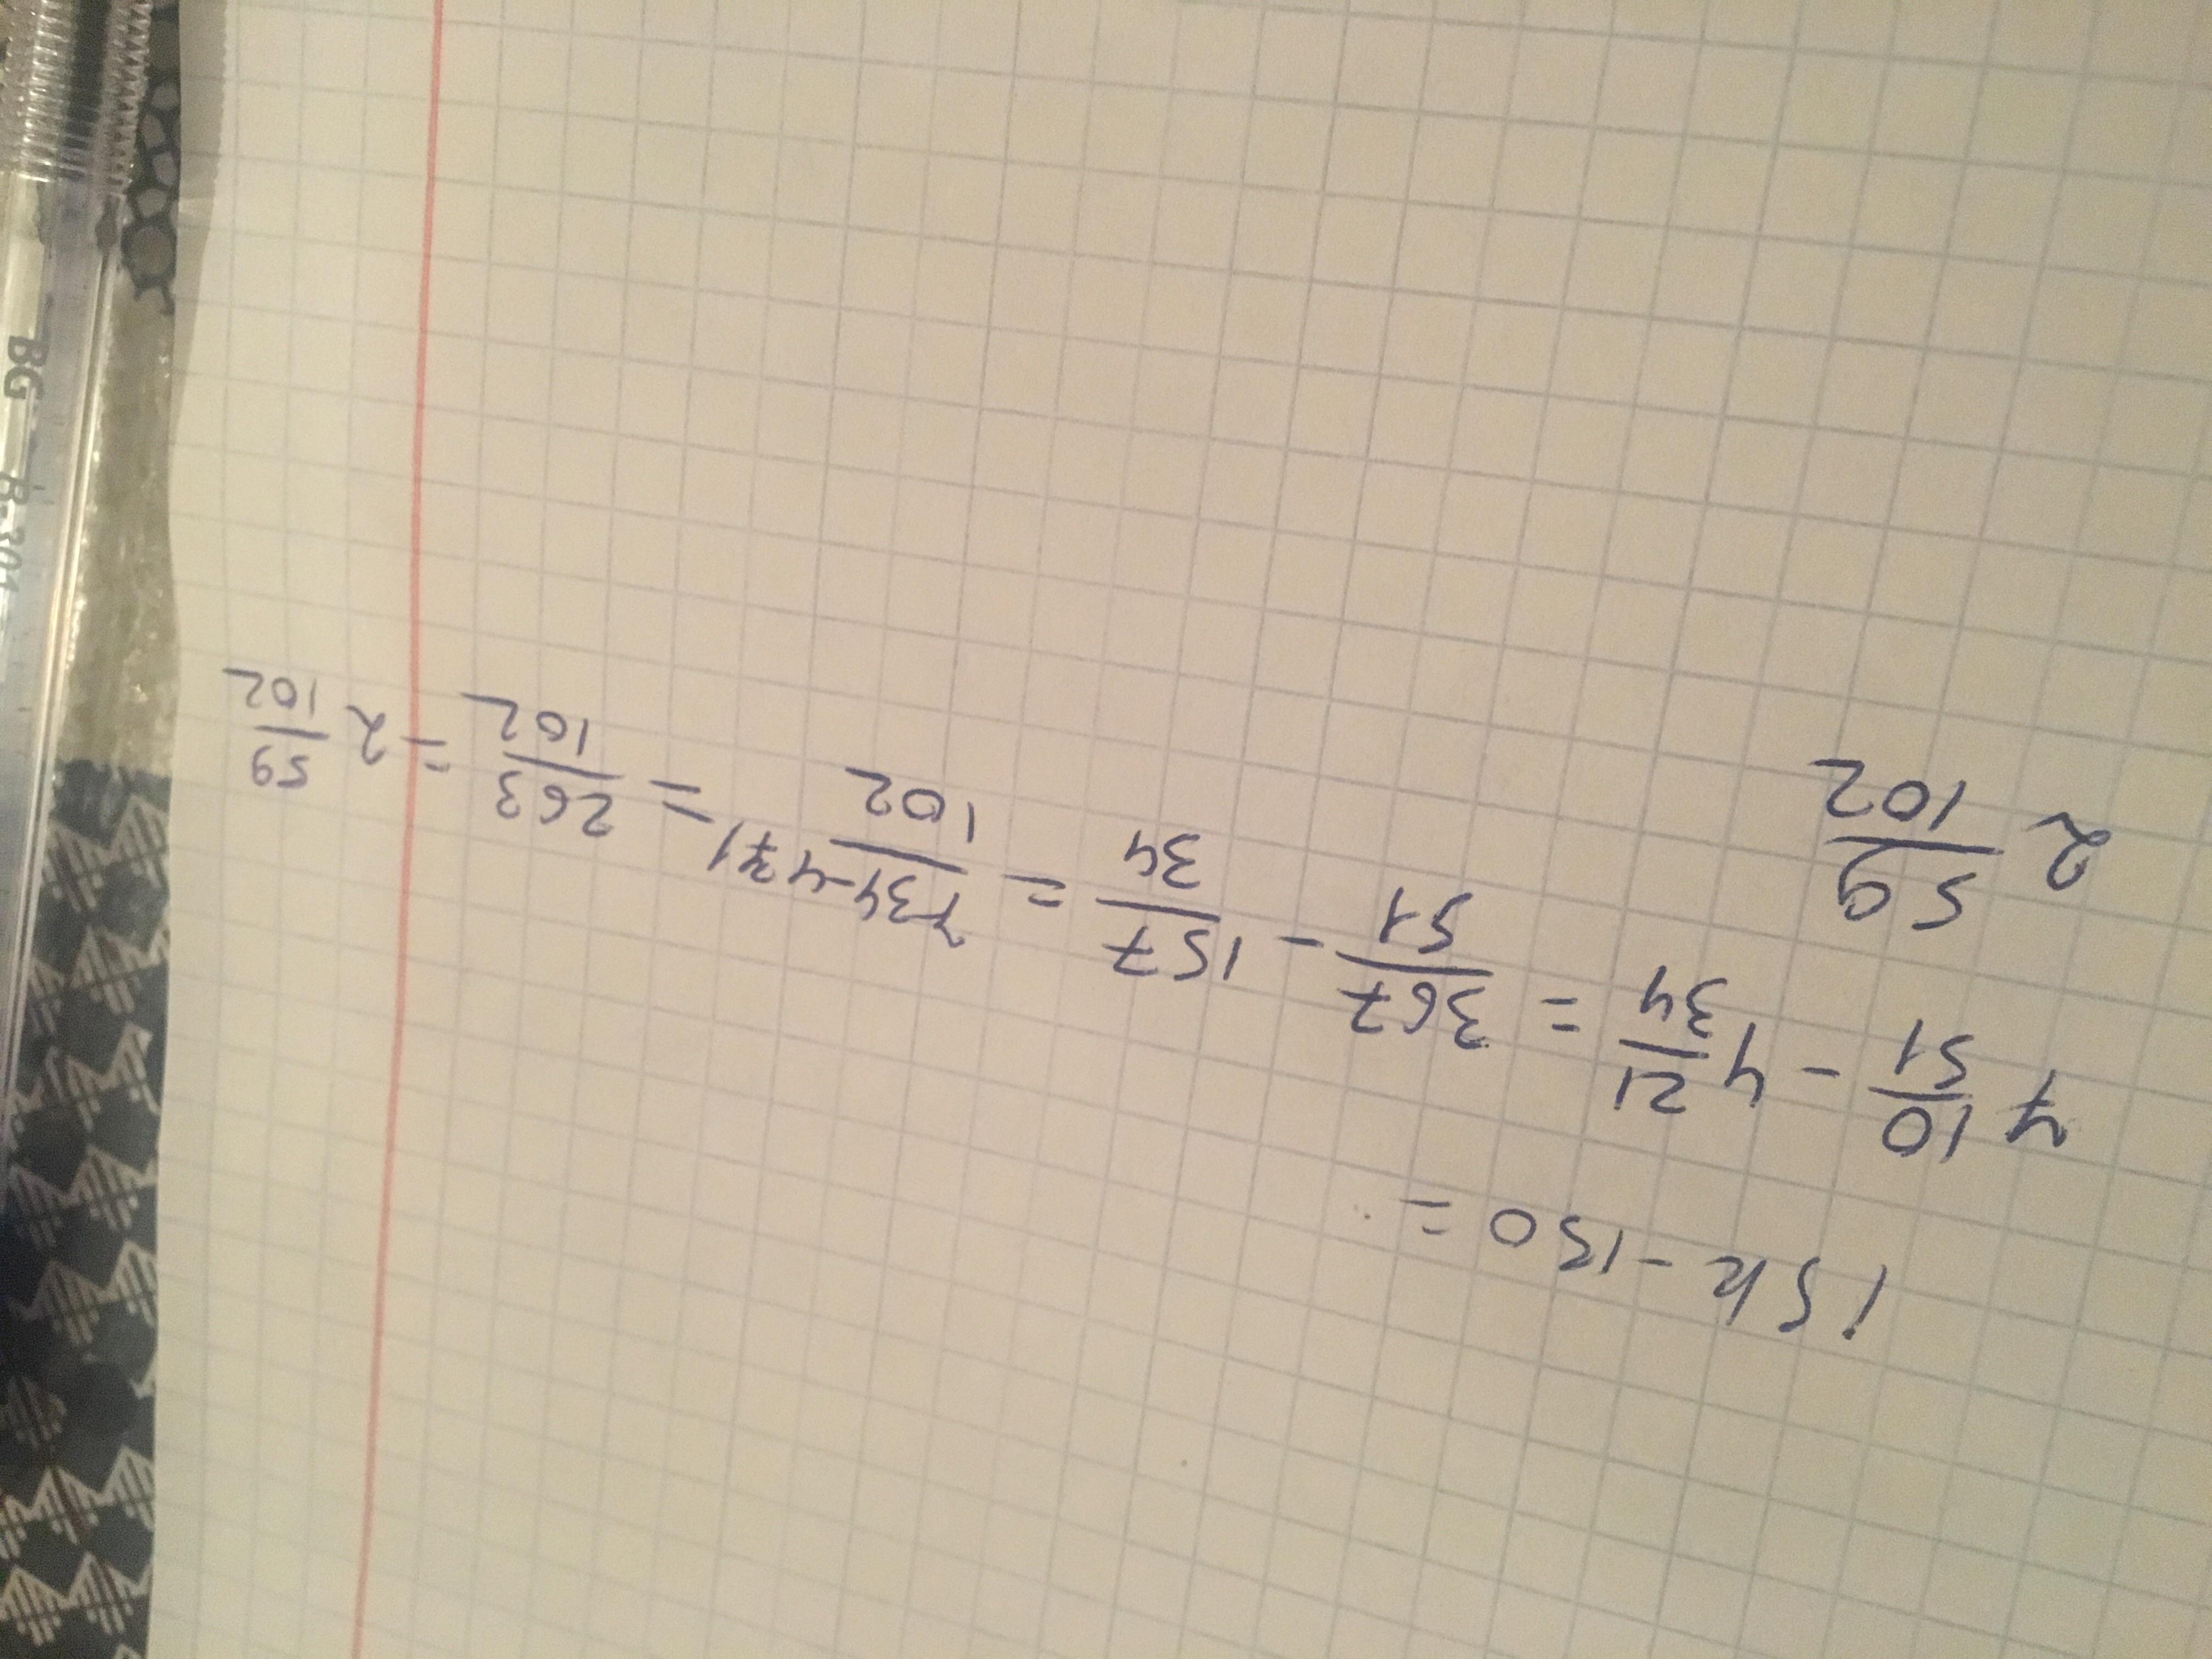 15k - 130 =
7 10/51 - 4 21/34 = 367/51 - 157/34 = 734-471/102 = 263/102 = 2 59/102
2 59/102
BG